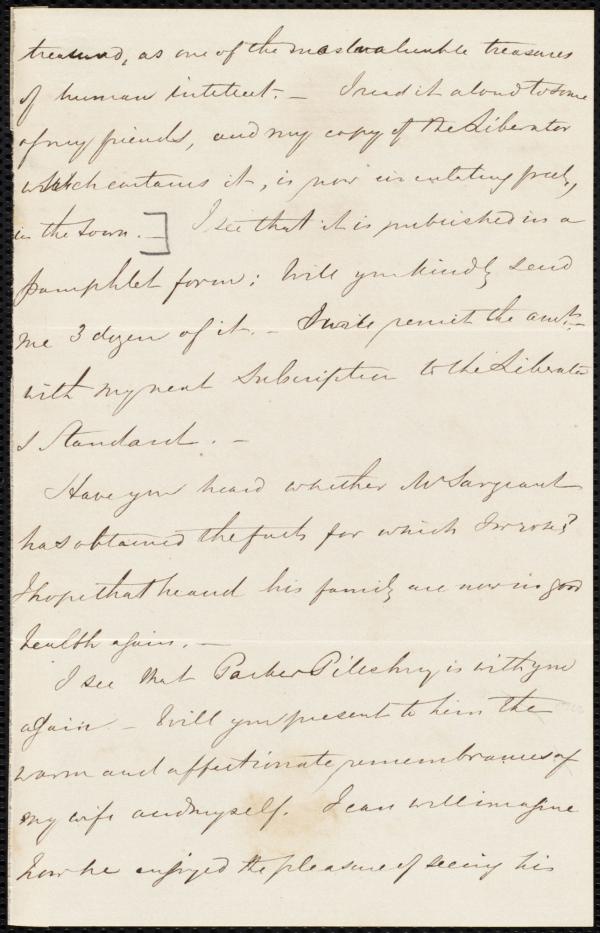 treasured, as one of the most valuable treasures
of human intellect. – I read it aloud to some
of my friends, and my copy of the Liberator
which contains it, is now circulating freely,
in the town. –] I see that it is published in a
pamphlet form: Will you kindly send
me 3 dozen of it. – I will remit the amt. –
with my next Subscription to the Liberator
& Standard. –
Have you heard whether Mr Sargeant
has obtained the facts for which I wrote?
I hope that he and his family are now in good
health again. –
I see that Parker Pillsbury is with you
again – Will you present to him the
warm and affectionate remembrances of
my wife and myself. I can well imagine
how he enjoyed the pleasure of seeing his